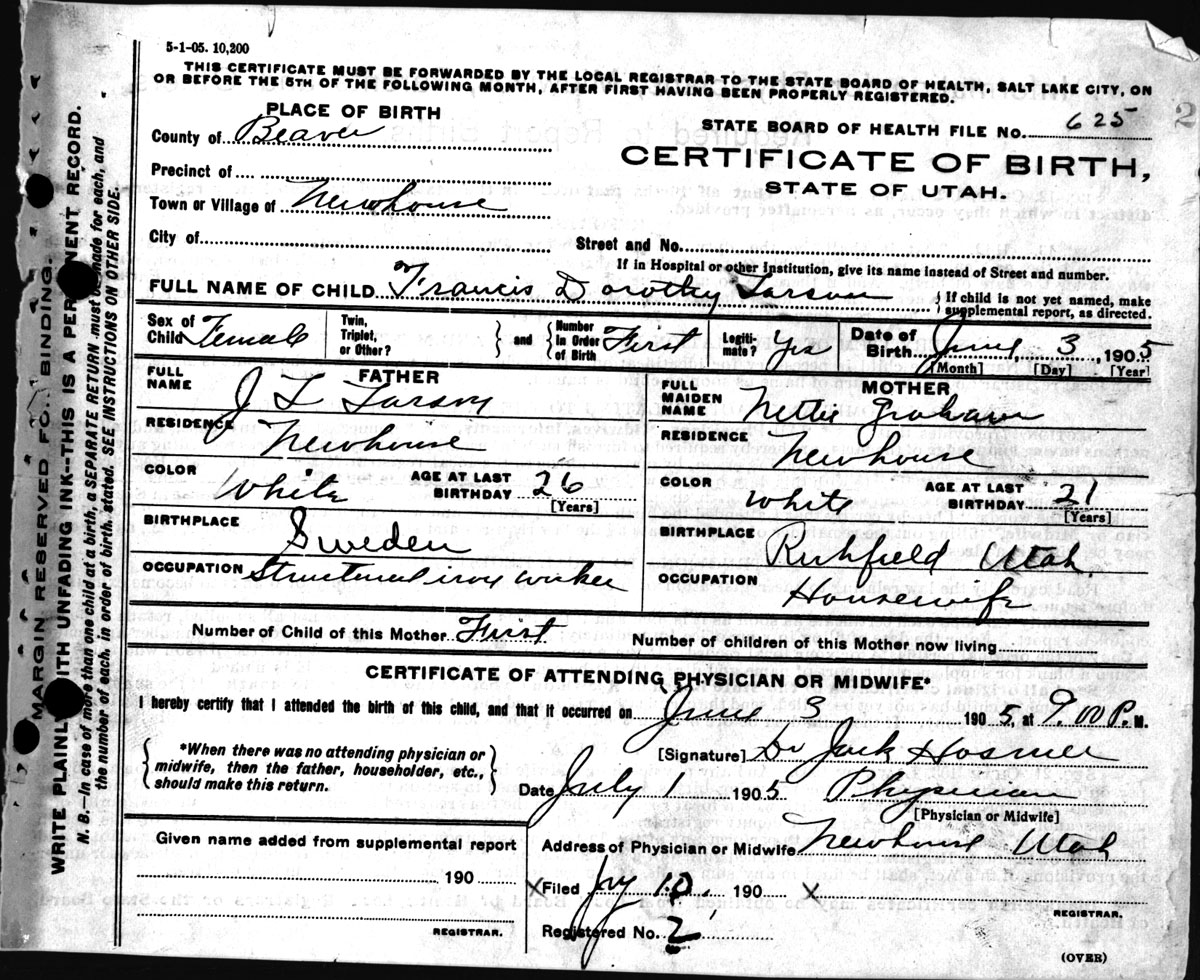 5-1-05. 10,200
THIS CERTIFICATE MUST BE FORWARDED BY THE LOCAL REGISTRAR TO THE STATE BOARD OF HEALTH, SALT LAKE CITY, ON
OR BEFORE THE 5TH OF THE FOLLOWING MONTH, AFTER FIRST HAVING BEEN PROPERLY REGISTERED.
PLACE OF BIRTH
County of Beaver
Precinct of
Town or Village of Newhouse
City of
STATE BOARD OF HEALTH FILE NO. 625
CERTIFICATE OF BIRTH,
STATE OF UTAH.
Street and No.
If in Hospital or other Institution, give its name instead of Street and number.
FULL NAME OF CHILD Francis Dorothy Larson
If child is not yet named, make supplemental report, as directed.
Sex of Child Female
Twin, Triplet, or Other?
and
Number in Order of Birth First
Legitimate? Yes
Date of Birth June 3, 1905
[Month] [Day] [Year]
FATHER
FULL NAME J L Larson
RESIDENCE Newhouse
COLOR White AGE AT LAST BIRTHDAY 26
[Years]
BIRTHPLACE Sweden
OCCUPATION Structural iron worker
MOTHER
FULL MAIDEN NAME Nettie Graham
RESIDENCE Newhouse
COLOR White AGE AT LAST BIRTHDAY 21
[Years]
BIRTHPLACE Richfield Utah.
OCCUPATION Housewife
Number of Child of this Mother First
Number of children of this Mother now living
CERTIFICATE OF ATTENDING PHYSICIAN OR MIDWIFE*
I hereby certify that I attended the birth of this child, and that it occurred on June 3 1905, at 9.00 P. M.
*When there was no attending physician or
midwife, then the father, householder, etc.,
should make this return.
[Signature] Dr Jack Hosmer
Date July 1 1905. Physician
[Physician or Midwife]
Given name added from supplemental report
190
REGISTRAR.
Address of Physician or Midwife Newhouse Utah
X Filed Jy 10, 190 X
REGISTRAR.
Registered No. 2
(OVER)
MARGIN RESERVED FOR BINDING.
WRITE PLAINLY WITH UNFADING INK--THIS IS A PERMANENT RECORD.
N. B.--In case of more than one child at a birth, a SEPARATE RETURN must be made for each, and
the number of each, in order of birth, stated. SEE INSTRUCTIONS ON OTHER SIDE.
2